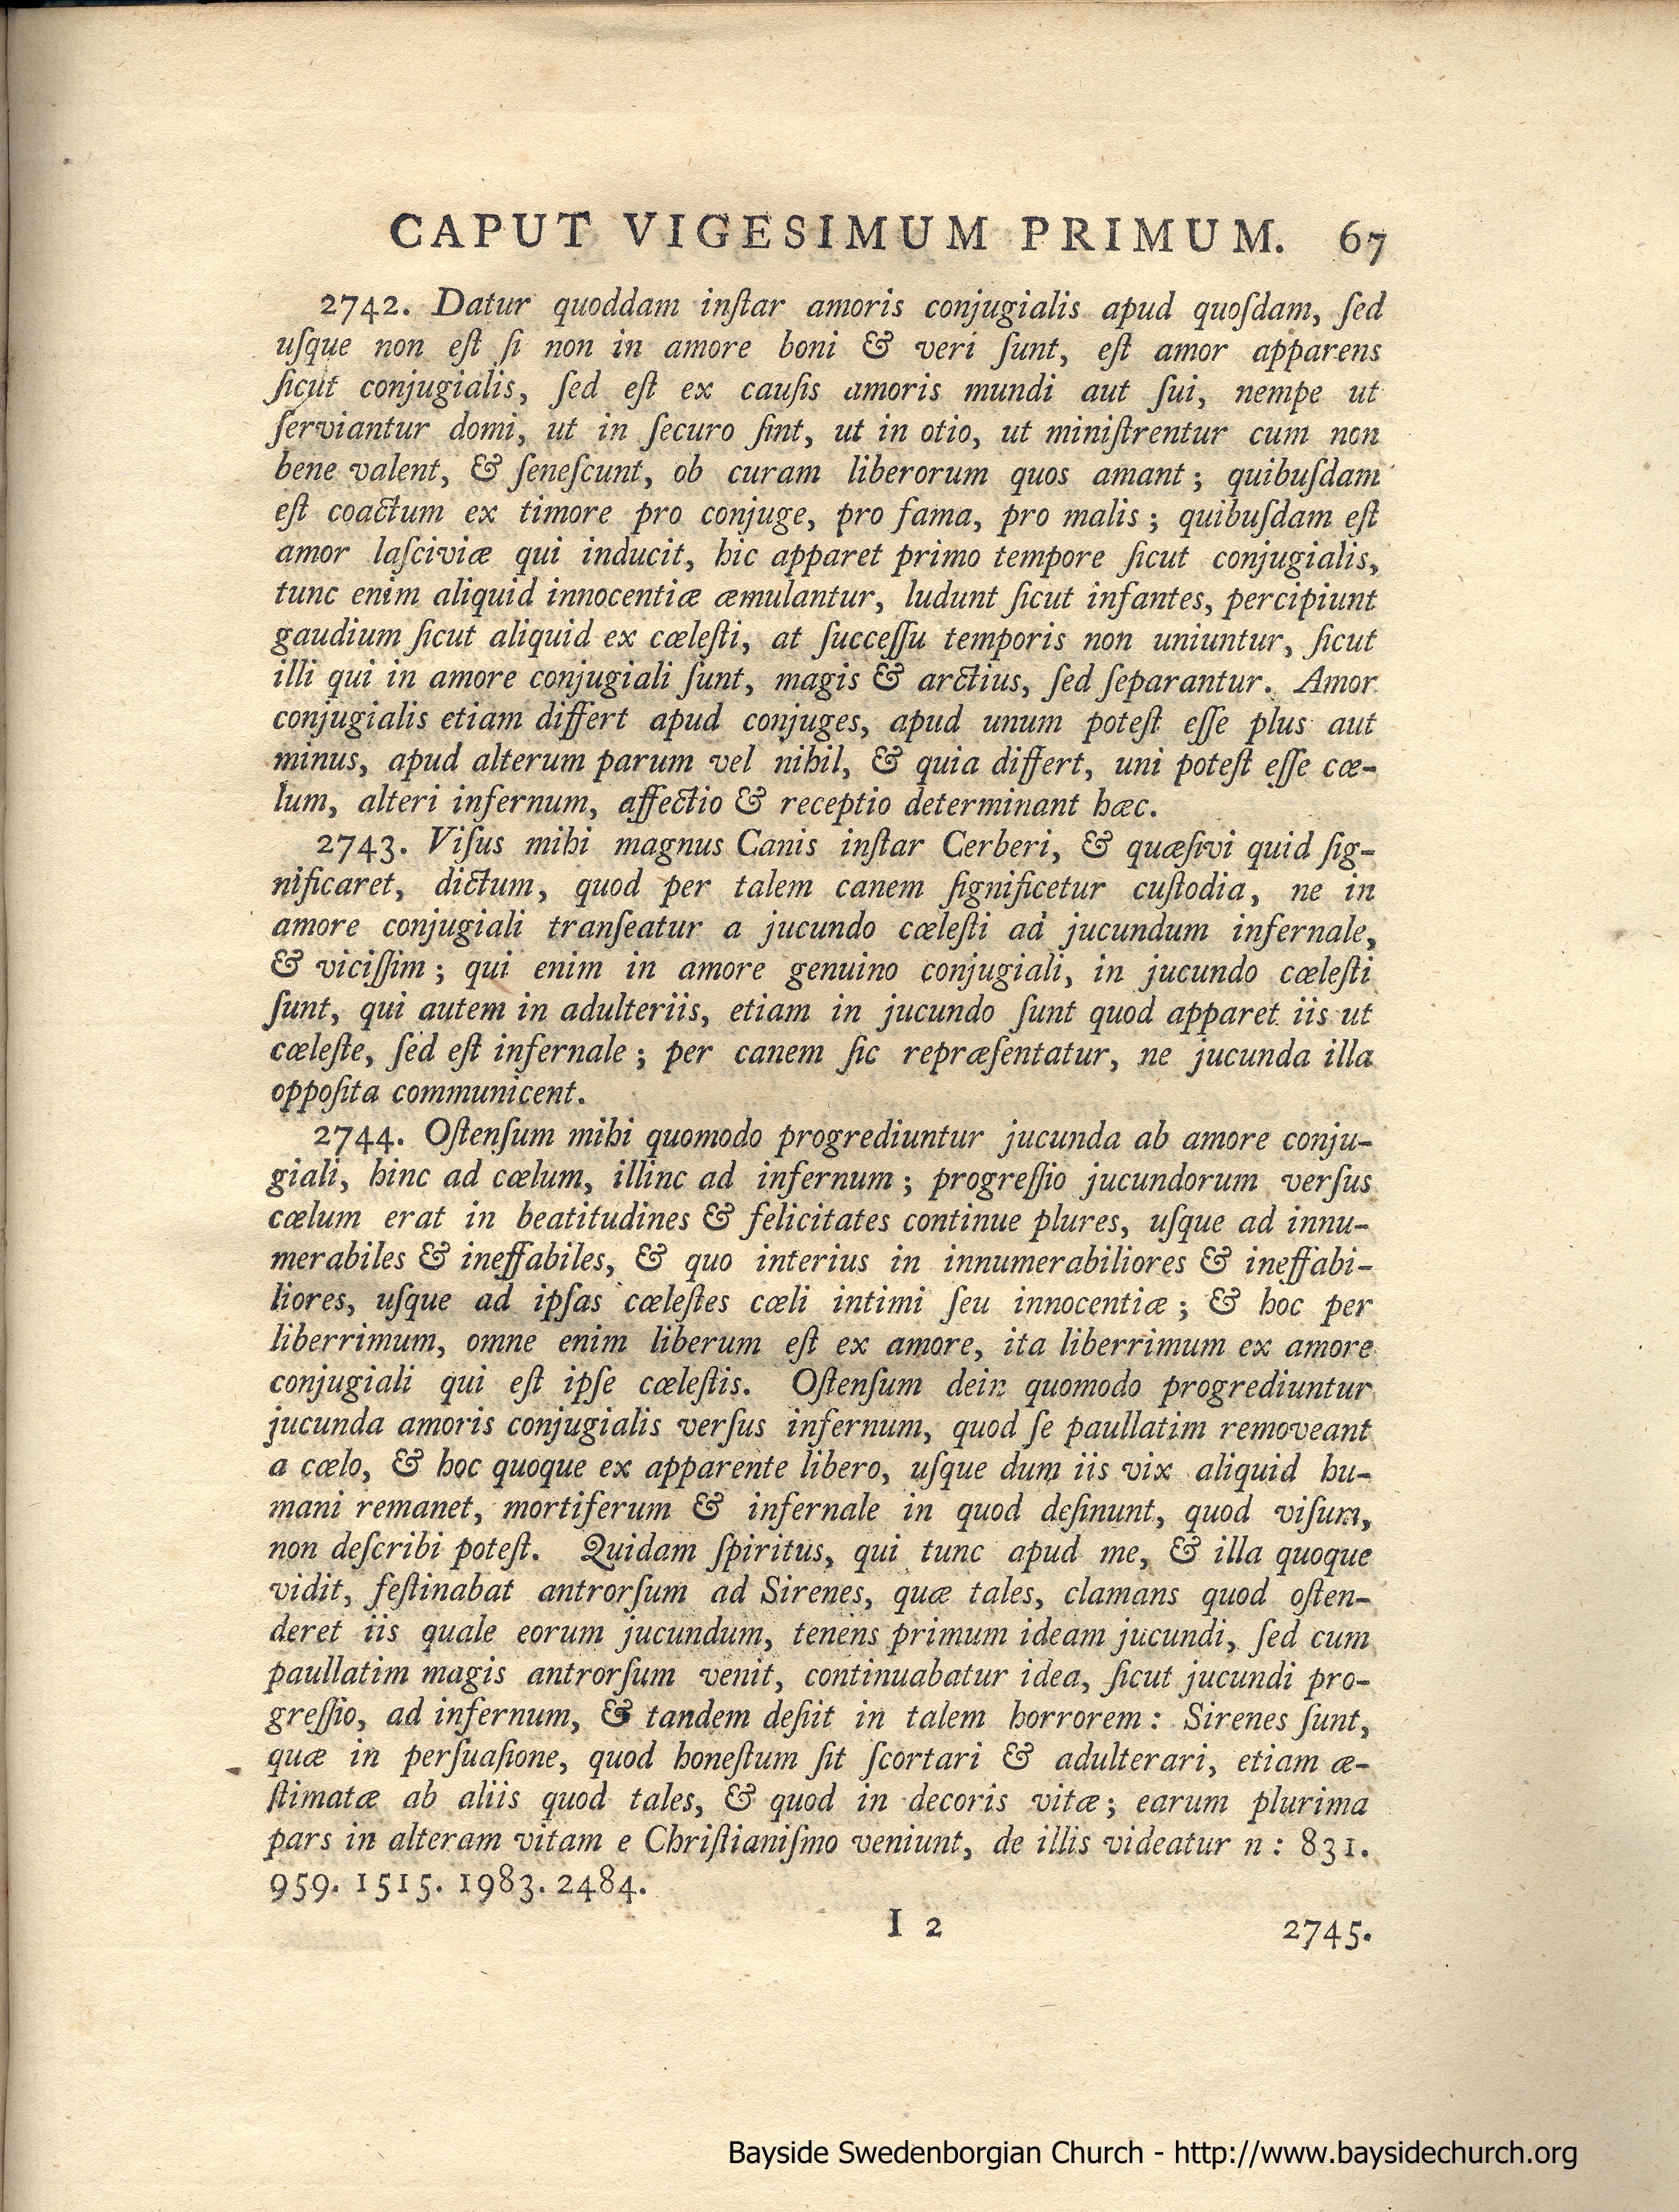 CAPUT VIGESIMUM PRIMUM. 67
2742. Datur quoddam inſtar amoris conjugialis apud quoſdam, ſed
uſque non eſt ſi non in amore boni & veri ſunt, eſt amor apparens
ſicut conjugialis, ſed eſt ex cauſis amoris mundi aut ſui, nempe ut
ſerviantur domi, ut in ſecuro ſint, ut in otio, ut miniſtrentur cum non
bene valent, & ſeneſcunt, ob curam liberorum quos amant; quibuſdam
eſt coactum ex timore pro conjuge, pro fama, pro malis; quibuſdam eſt
amor laſciviæ qui inducit, hic apparet primo tempore ſicut conjugialis,
tunc enim aliquid innocentiæ æmulantur, ludunt ſicut infantes, percipiunt
gaudium ſicut aliquid ex cœleſti, at ſucceſſu temporis non uniuntur, ſicut
illi qui in amore conjugiali ſunt, magis & arctius, ſed ſeparantur. Amor
conjugialis etiam differt apud conjuges, apud unum poteſt eſſe plus aut
minus, apud alterum parum vel nihil, & quia differt, uni poteſt eſſe cœ-
lum, alteri infernum, affectio & receptio determinant hæc.
2743. Viſus mihi magnus Canis inſtar Cerberi, & quæſivi quid ſig-
nificaret, dictum, quod per talem canem ſignificetur cuſtodia, ne in
amore conjugiali tranſeatur a jucundo cœleſti ad jucundum infernale,
& viciſſim; qui enim in amore genuino conjugiali, in jucundo cœleſti
ſunt, qui autem in adulteriis, etiam in jucundo ſunt quod apparet iis ut
cœleſte, ſed eſt infernale; per canem ſic repræſentatur, ne jucunda illa
oppoſita communicent.
2744. Oſtenſum mihi quomodo progrediuntur jucunda ab amore conju-
giali, hinc ad cœlum, illinc ad infernum; progreſſio jucundorum verſus
cœlum erat in beatitudines & felicitates continue plures, uſque ad innu-
merabiles & ineffabiles, & quo interius in innumerabiliores & ineffabi-
liores, uſque ad ipſas cœleſtes cœli intimi ſeu innocentiæ; & hoc per
liberrimum, omne enim liberum eſt ex amore, ita liberrimum ex amore
conjugiali qui eſt ipſe cœleſtis. Oſtenſum dein quomodo progrediuntur
jucunda amoris conjugialis verſus infernum, quod ſe paullatim removeant
a cœlo, & hoc quoque ex apparente libero, uſque dum iis vix aliquid hu-
mani remanet, mortiferum & infernale in quod deſinunt, quod viſum,
non deſcribi poteſt. Quidam ſpiritus, qui tunc apud me, & illa quoque
vidit, feſtinabat antrorſum ad Sirenes, quæ tales, clamans quod oſten-
deret iis quale eorum jucundum, tenens primum ideam jucundi, ſed cum
paullatim magis antrorſum venit, continuabatur idea, ſicut jucundi pro-
greſſio, ad infernum, & tandem deſiit in talem horrorem: Sirenes ſunt,
quæ in perſuaſione, quod honeſtum ſit ſcortari & adulterari, etiam æ-
ſtimatæ ab aliis quod tales, & quod in decoris vitæ; earum plurima
pars in alteram vitam e Chriſtianiſmo veniunt, de illis videatur n: 831.
959. 1515. 1983. 2484.
I 2 2745.
Bayside Swedenborgian Church - http://www.baysidechurch.org